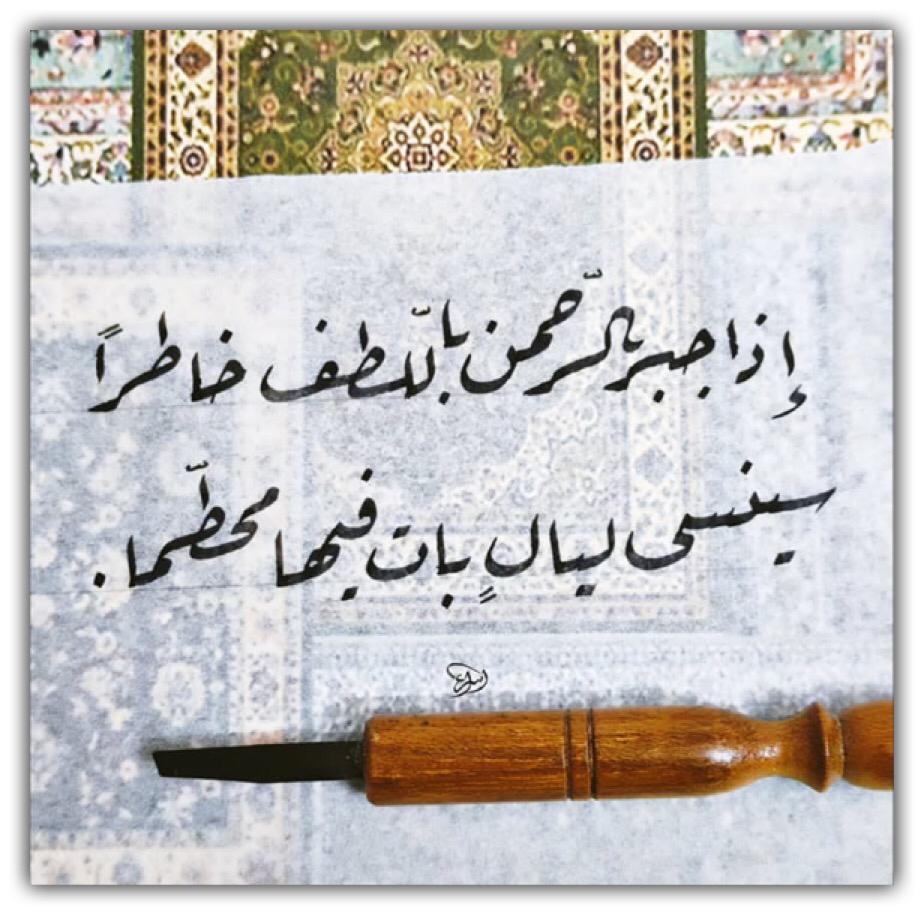 إذا جبر الرّحمن باللّطف خاطراً
سينسى ليالٍ بات فيها محطّما.